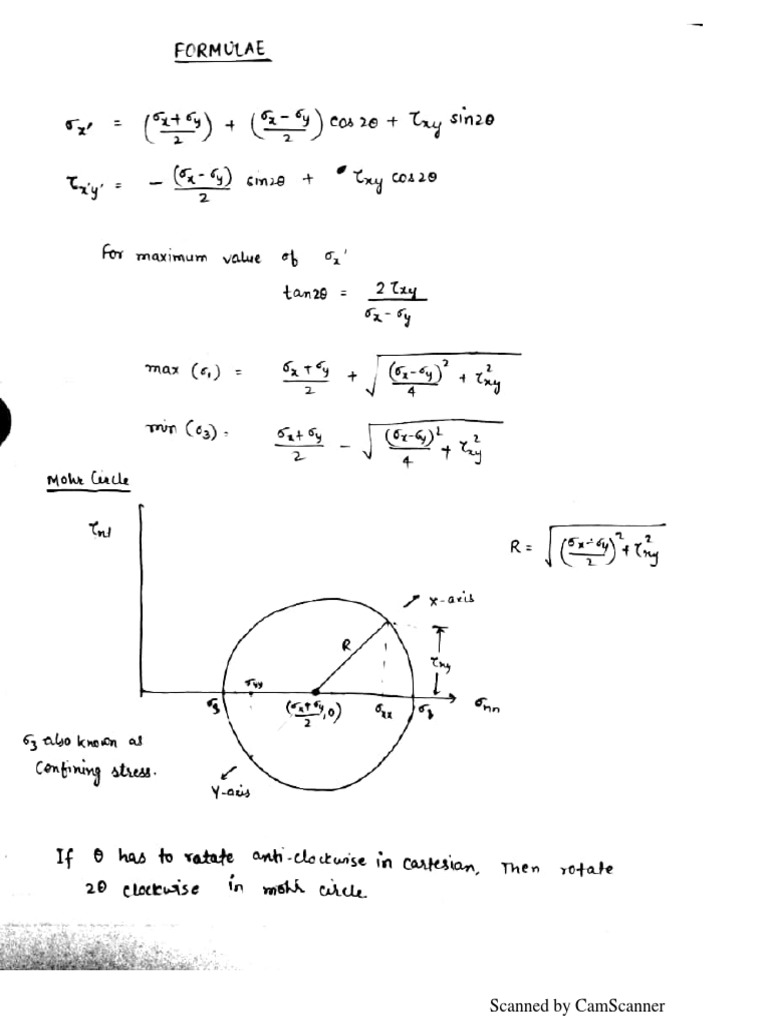 FORMULAE
σx' = (σx + σy / 2) + (σx - σy / 2) cos 2θ + τxy sin2θ
τx'y' = - (σx - σy) / 2 sin2θ + τxy cos2θ
for maximum value of σx'
tan2θ = 2τxy / σx - σy
max (σ1) = σx + σy / 2 + √((σx - σy)² / 4 + τ²xy)
min (σ3) = σx + σy / 2 - √((σx - σy)² / 4 + τxy²)
Mohr Circle
R = √((σx - σy / 2)² + τ²xy)
x-axis
R
τxy
σyy
σ3
(σx + σy / 2, 0)
σxx
σ1
σnn
σ3 also known as
Confining stress.
Y-axis
If θ has to rotate anti-clockwise in cartesian, Then rotate
2θ clockwise in mohr circle.
Scanned by CamScanner